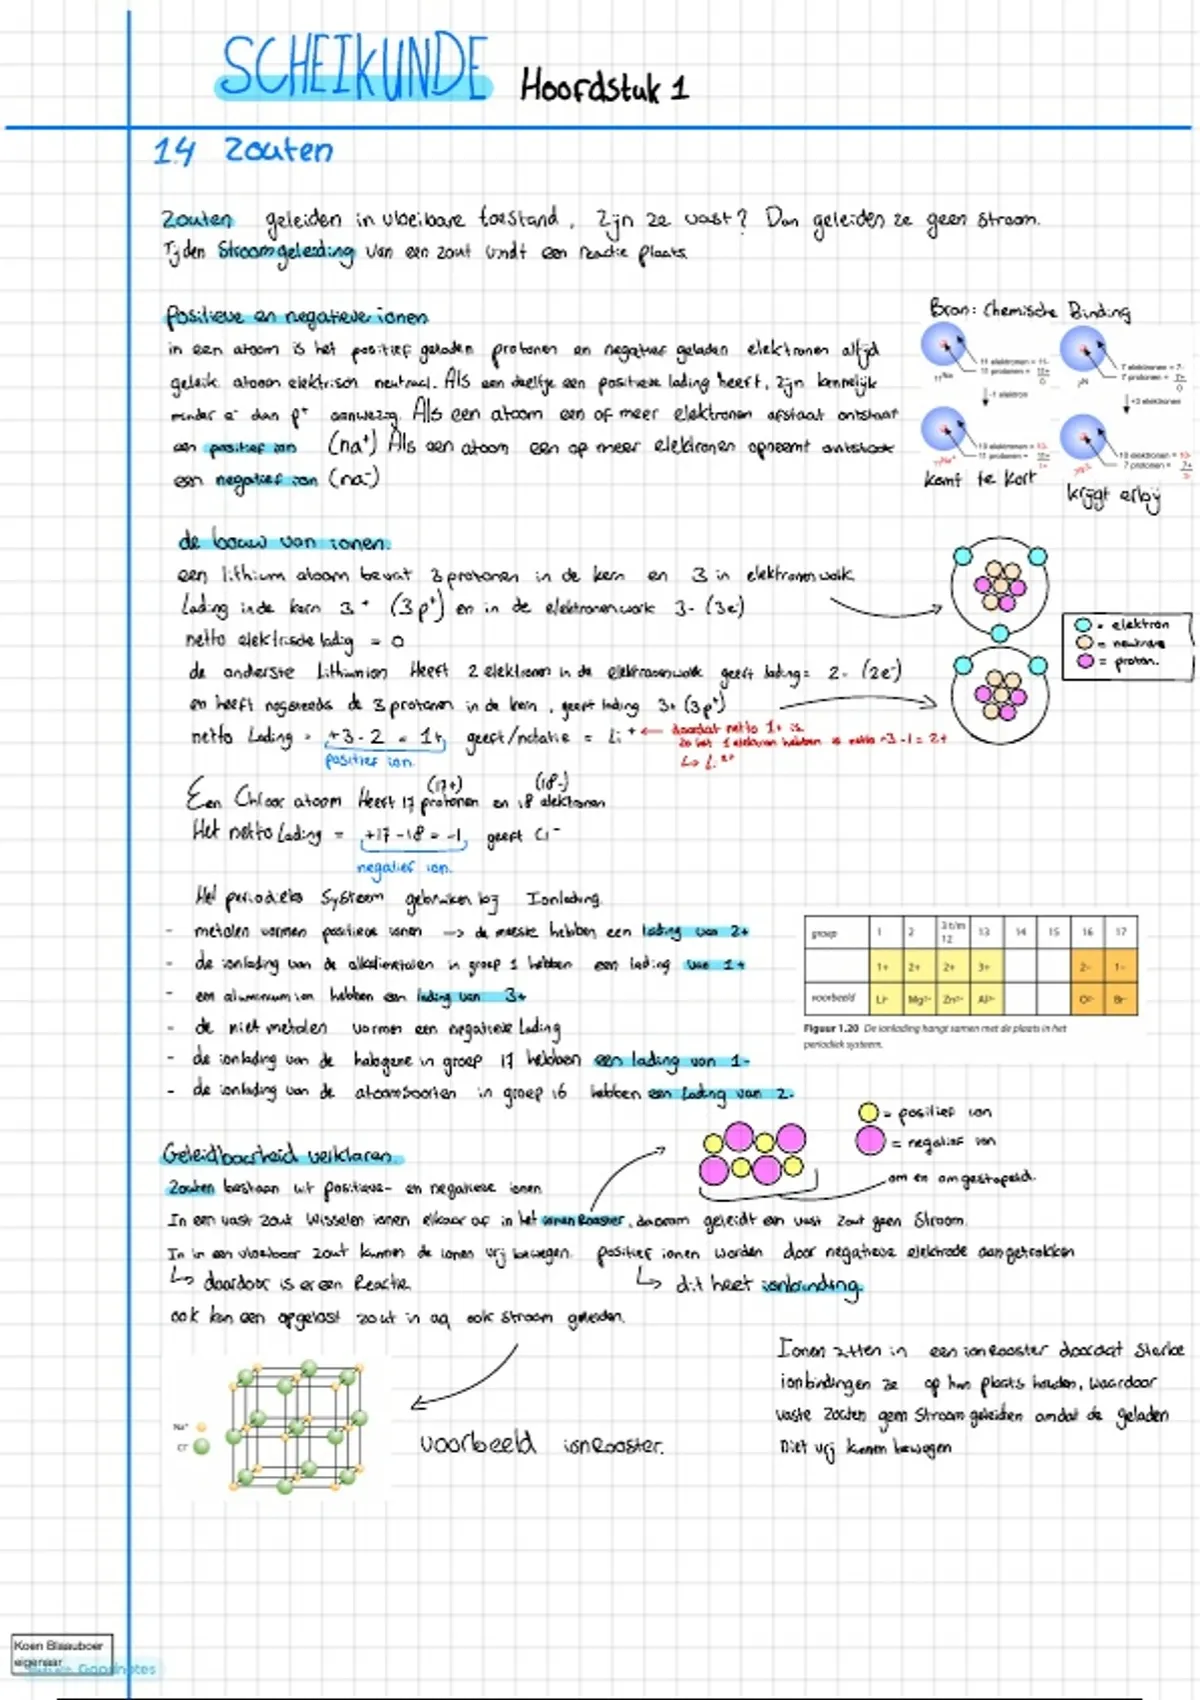 SCHEIKUNDE Hoofdstuk 1
1.4 Zouten
Zouten geleiden in vloeibare toestand, Zijn ze vast? Dan geleiden ze geen stroom.
Tijden Stroomgeleiding van een zout vindt een reactie plaats.
Positieve en negatieve ionen
in een atoom is het positief geladen protonen en negatief geladen elektronen altijd
gelijk. atoom elektrisch neutraal. Als een deeltje een positieve lading heeft, zijn kennelijk
minder e⁻ dan p⁺ aanwezig. Als een atoom een of meer elektronen afstaat ontstaat
een positief ion (na⁺) Als een atoom een op meer elektronen opneemt ontstaat
een negatief ion (na⁻)
Bron: Chemische Binding
11 elektronen = 11-
11 protonen = 11+
0
₁₁Na
-1 elektron
10 elektronen = 10-
11 protonen = 11+
1+
komt te kort
7 elektronen = 7-
7 protonen = 7+
0
₇N
+3 elektronen
10 elektronen = 10-
7 protonen = 7+
3-
krijgt erbij
de bouw van ionen.
een lithium atoom bevat 3 protonen in de kern en 3 in elektronenwolk
Lading in de kern 3⁺ (3p⁺) en in de elektronenwolk 3- (3e)
netto elektrische ladig = 0
de onderste Lithiumion Heeft 2 elektronen in de elektronenwolk geeft lading = 2- (2e⁻)
en heeft nogsteeds de 3 protonen in de kern, geeft lading 3+ (3p⁺)
netto Lading = +3 - 2 = 1+ geeft/notatie = Li⁺ ← doordat netto 1+ is.
zo het 1 elektron hebben is netto +3 -1 = 2+
↳ Li²⁺
positief ion.
= elektron
= neutron
= proton.
(17+) (18-)
Een Chloor atoom Heeft 17 protonen en 18 elektronen
Het netto Lading = +17 - 18 = -1 geeft Cl⁻
negatief ion.
Het periodieks Systeem gebruiken bij Ionlading.
- metalen vormen positieve ionen → de meeste hebben een lading van 2+
- de ionlading van de alkalimetalen in groep 1 hebben een lading van 1+
- een aluminium ion hebben een lading van 3+
- de niet metalen vormen een negatieve Lading
- de ionlading van de halogene in groep 17 hebben een lading van 1-
- de ionlading van de atoomsoorten in groep 16 hebben een Lading van 2-
groep 1 2 3 t/m 12 13 14 15 16 17
1+ 2+ 2+ 3+ 2- 1-
voorbeeld Li⁺ Mg²⁺ Zn²⁺ Al³⁺ O²⁻ Br⁻
Figuur 1.20 De ionlading hangt samen met de plaats in het
periodiek systeem.
Geleidbaarheid verklaren.
Zouten bestaan uit positieve- en negatieve ionen
= positief ion
= negatief ion
om en om gestapeld.
In een vast zout wisselen ionen elkaar af in het ionenRooster, daarom geleidt een vast Zout geen Stroom.
In in een vloeibaar zout kunnen de ionen vrij bewegen. positief ionen worden door negatieve elektrode aangetrokken
↳ daardoor is er een Reactie
↳ dit heet ionbinding.
ook kan een opgelost zout in aq ook stroom geleiden.
Na⁺
Cl⁻
voorbeeld ionRooster.
Ionen zitten in een ionRooster doordat sterke
ionbindingen ze op hun plaats houden, waardoor
vaste Zouten geen Stroom geleiden omdat de geladen
niet vrij kunnen bewegen
Koen Blaauboer
eigenaar
Goodnotes